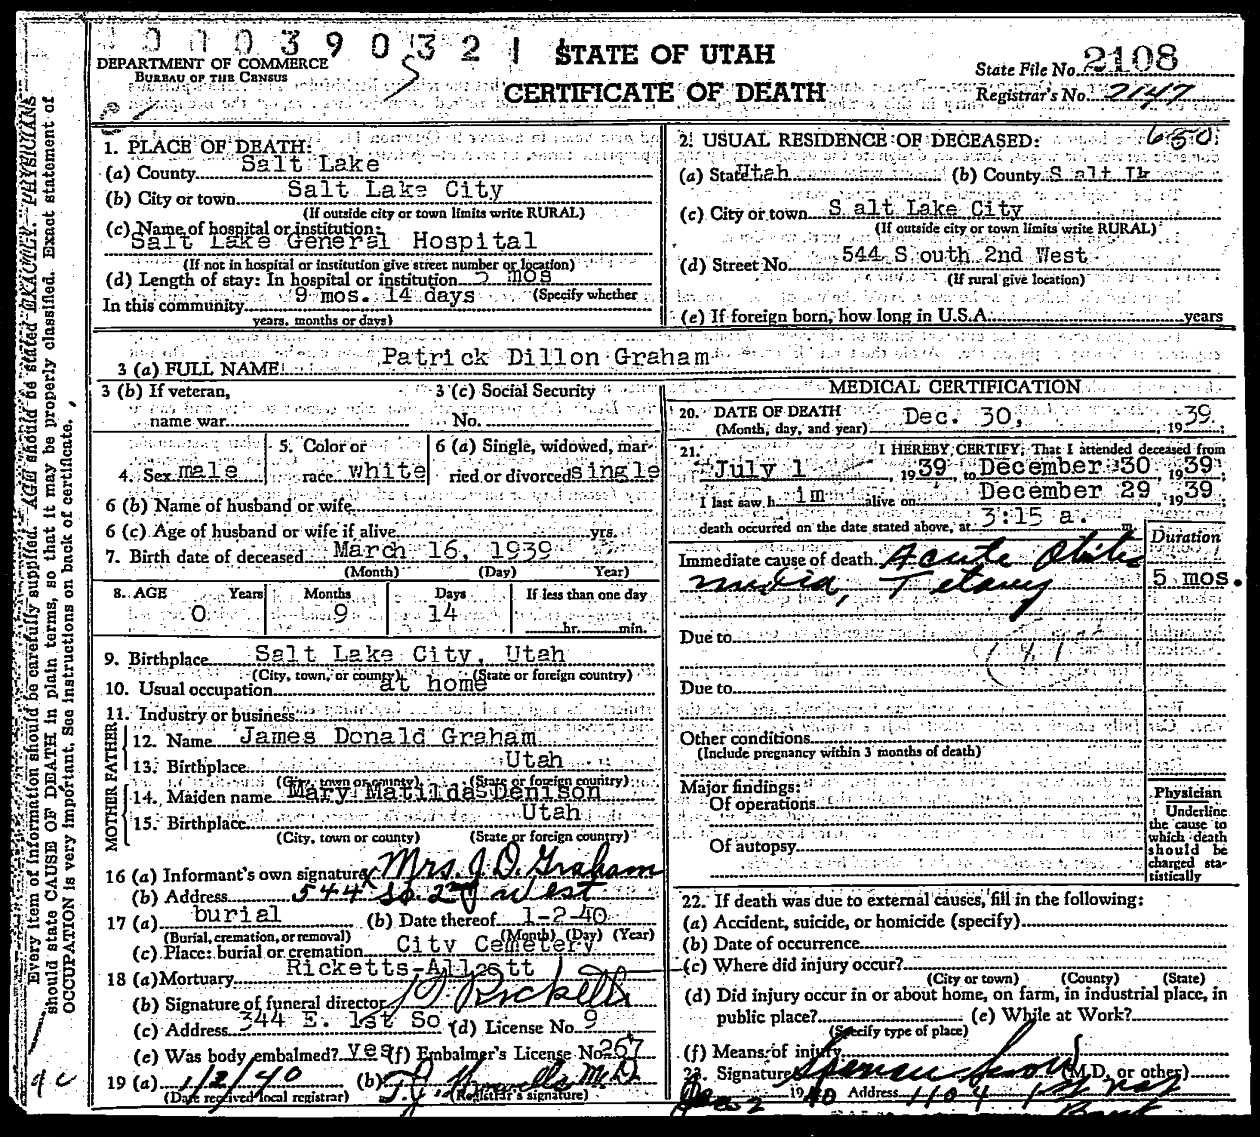 000390321
STATE OF UTAH
CERTIFICATE OF DEATH
DEPARTMENT OF COMMERCE
BUREAU OF THE CENSUS
State File No. 2108
Registrar's No. 2147
Every item of information should be carefully supplied. AGE should be stated EXACTLY. PHYSICIANS
should state CAUSE OF DEATH in plain terms, so that it may be properly classified. Exact statement of
OCCUPATION is very important. See instructions on back of certificate.
1. PLACE OF DEATH:
(a) County Salt Lake
(b) City or town Salt Lake City
(If outside city or town limits write RURAL)
(c) Name of hospital or institution:
Salt Lake General Hospital
(If not in hospital or institution give street number or location)
(d) Length of stay: In hospital or institution 5 mos
In this community 9 mos. 14 days (Specify whether
years, months or days)
2. USUAL RESIDENCE OF DECEASED: 650
(a) State Utah (b) County Salt Lk
(c) City or town Salt Lake City
(If outside city or town limits write RURAL)
(d) Street No. 544 South 2nd West
(If rural give location)
(e) If foreign born, how long in U.S.A. years
3 (a) FULL NAME Patrick Dillon Graham
3 (b) If veteran, 3 (c) Social Security
name war No.
4. Sex male 5. Color or race white 6 (a) Single, widowed, married or divorced single
6 (b) Name of husband or wife
6 (c) Age of husband or wife if alive yrs.
7. Birth date of deceased March 16, 1939
(Month) (Day) Year)
8. AGE Years Months Days If less than one day
0 9 14 hr. min.
9. Birthplace Salt Lake City, Utah
(City, town, or county) (State or foreign country)
10. Usual occupation at home
11. Industry or business
FATHER
12. Name James Donald Graham
13. Birthplace Utah
(City, town or county) (State or foreign country)
MOTHER
14. Maiden name Mary Matilda Denison
15. Birthplace Utah
(City, town or county) (State or foreign country)
16 (a) Informant's own signature X Mrs. J. D. Graham
(b) Address 544 So. 2nd West
17 (a) burial (b) Date thereof 1-2-40
(Burial, cremation, or removal) (Month) (Day) (Year)
(c) Place: burial or cremation City Cemetery
18 (a) Mortuary Ricketts-Allcott
(b) Signature of funeral director Ricketts
(c) Address 344 E. 1st So (d) License No. 9
(e) Was body embalmed? yes (f) Embalmer's License No. 267
19 (a) 1/2/40 (b) M.D.
(Date received local registrar) (Registrar's signature)
MEDICAL CERTIFICATION
20. DATE OF DEATH Dec. 30, 1939;
(Month, day, and year)
21. I HEREBY CERTIFY, That I attended deceased from
July 1, 1939, to December 30, 1939;
I last saw him alive on December 29, 1939;
death occurred on the date stated above, at 3:15 a. m.
Duration
Immediate cause of death Acute Otitis
media, Tetany 5 mos.
Due to
Due to
Other conditions
(Include pregnancy within 3 months of death)
Major findings:
Of operations
Of autopsy
Physician
Underline
the cause to
which death
should be
charged sta-
tistically
22. If death was due to external causes, fill in the following:
(a) Accident, suicide, or homicide (specify)
(b) Date of occurrence
(c) Where did injury occur?
(City or town) (County) (State)
(d) Did injury occur in or about home, on farm, in industrial place, in
public place? (e) While at Work?
(Specify type of place)
(f) Means of injury
23. Signature (M.D. or other)
1940 Address 1104 1st Nat